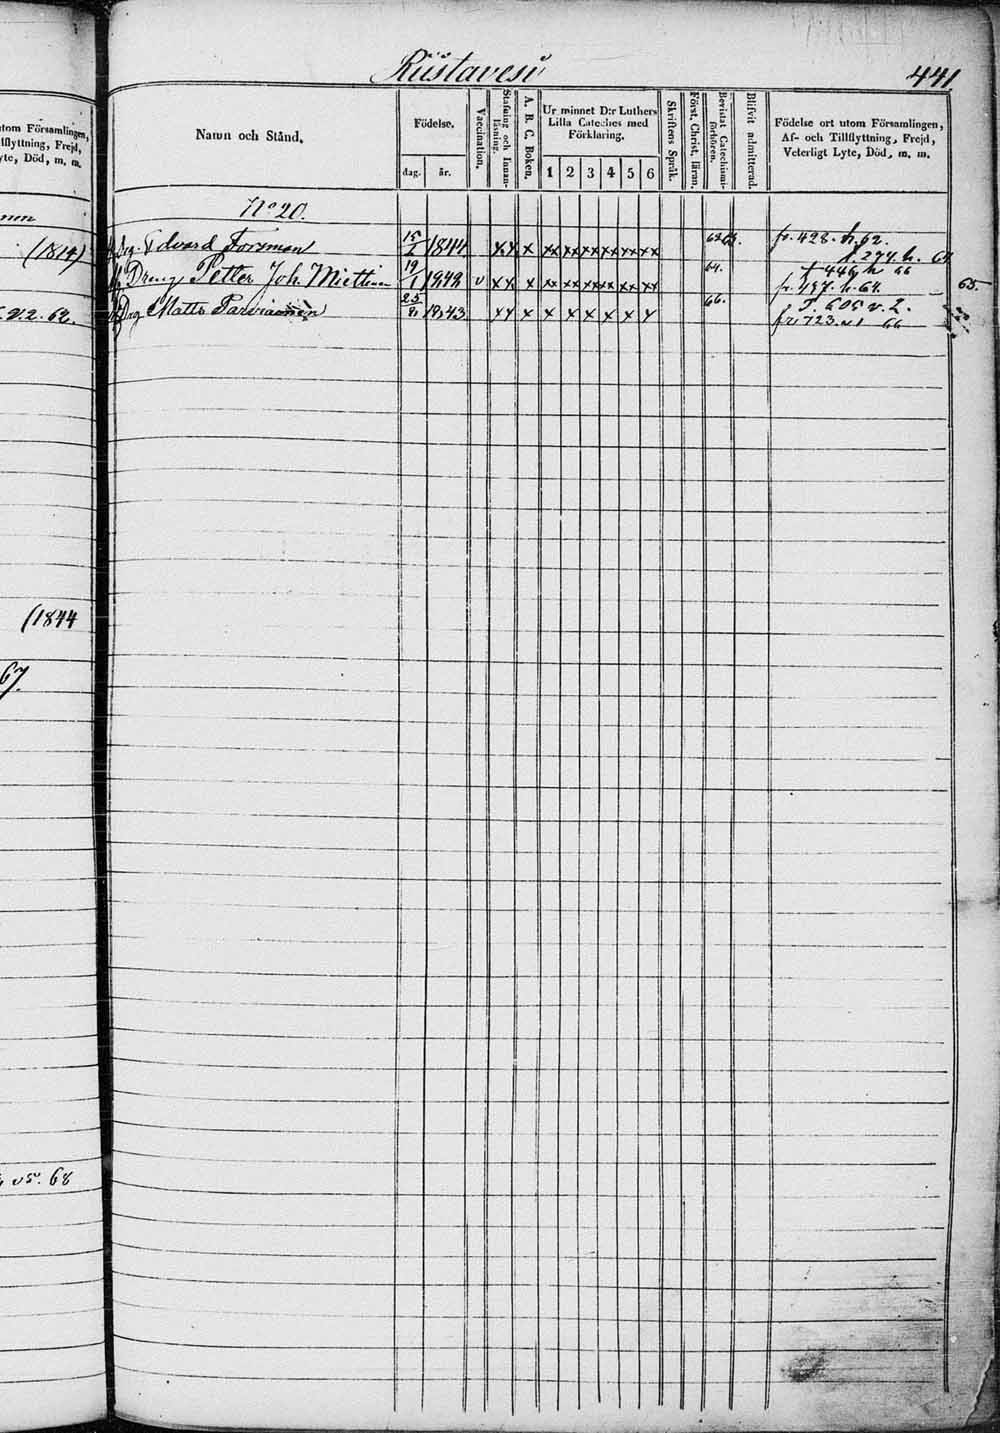 Riistavesi
441
Namn och Stånd.
Födelse.
dag.
år.
Vaccination.
Stafning och Innan-
läsning.
A. B. C. Boken.
Ur minnet D:r Luthers
Lilla Cateches med
Förklaring.
1 2 3 4 5 6
Skriftens Språk.
Först. Christ. läran.
Bevistat Catechismi-
förhören.
Blifvit admitterad.
Födelse ort utom Församlingen,
Af- och Tillflyttning, Frejd,
Veterligt Lyte, Död, m. m.
No 20.
Drg. Edvard Forsman 15 1844 xx x xx xx xx xx xx xx 63. fr. 428. h. 62.
t. 274. h. 64
Dreng Petter Joh. Miettinen 19/1 1842 v xx x xx xx xx xx xx xx 64. fr. 197. h. 64. 65.
t 446 h 66
Drg Matts 25 1843 xx x x x x x x x 66. fr. 723. v 1 66
T. 605 v. 2.
utom Församlingen,
llflyttning, Frejd,
yte, Död, m. m.
(1814)
v. 2. 62.
(1844
67.
v5. 68